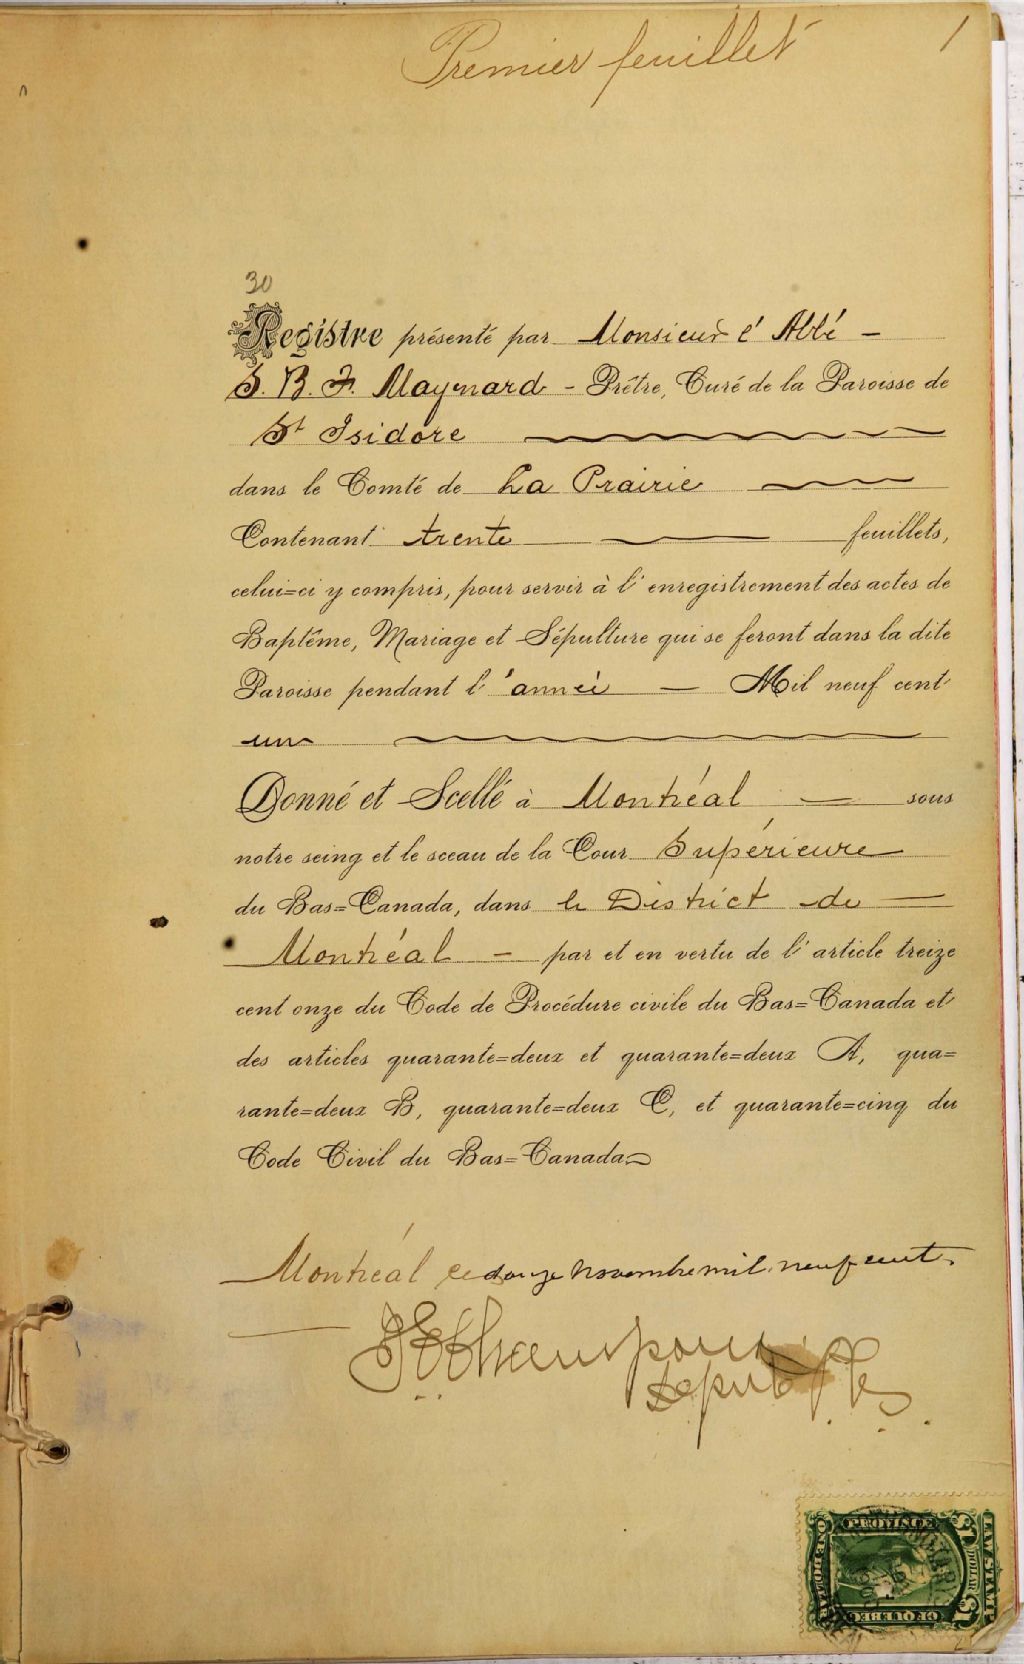 Premier feuillet 1
30
Registre présenté par Monsieur l'Abbé
S. B. F. Maynard - Prêtre, Curé de la Paroisse de
St Isidore
dans le Comté de La Prairie
Contenant trente feuillets,
celui=ci y compris, pour servir à l'enregistrement des actes de
Baptême, Mariage et Sépulture qui se feront dans la dite
Paroisse pendant l'année Mil neuf cent
un
Donné et Scellé à Montréal sous
notre seing et le sceau de la Cour Supérieure
du Bas=Canada, dans le District de
Montréal - par et en vertu de l'article treize
cent onze du Code de Procédure civile du Bas=Canada et
des articles quarante=deux et quarante=deux A, qua=
rante=deux B, quarante=deux C, et quarante=cinq du
Code Civil du Bas=Canada
Montréal ce douze novembre mil neuf cent
Député
LAW STAMP
$1 DOLLAR $1
QUEBEC